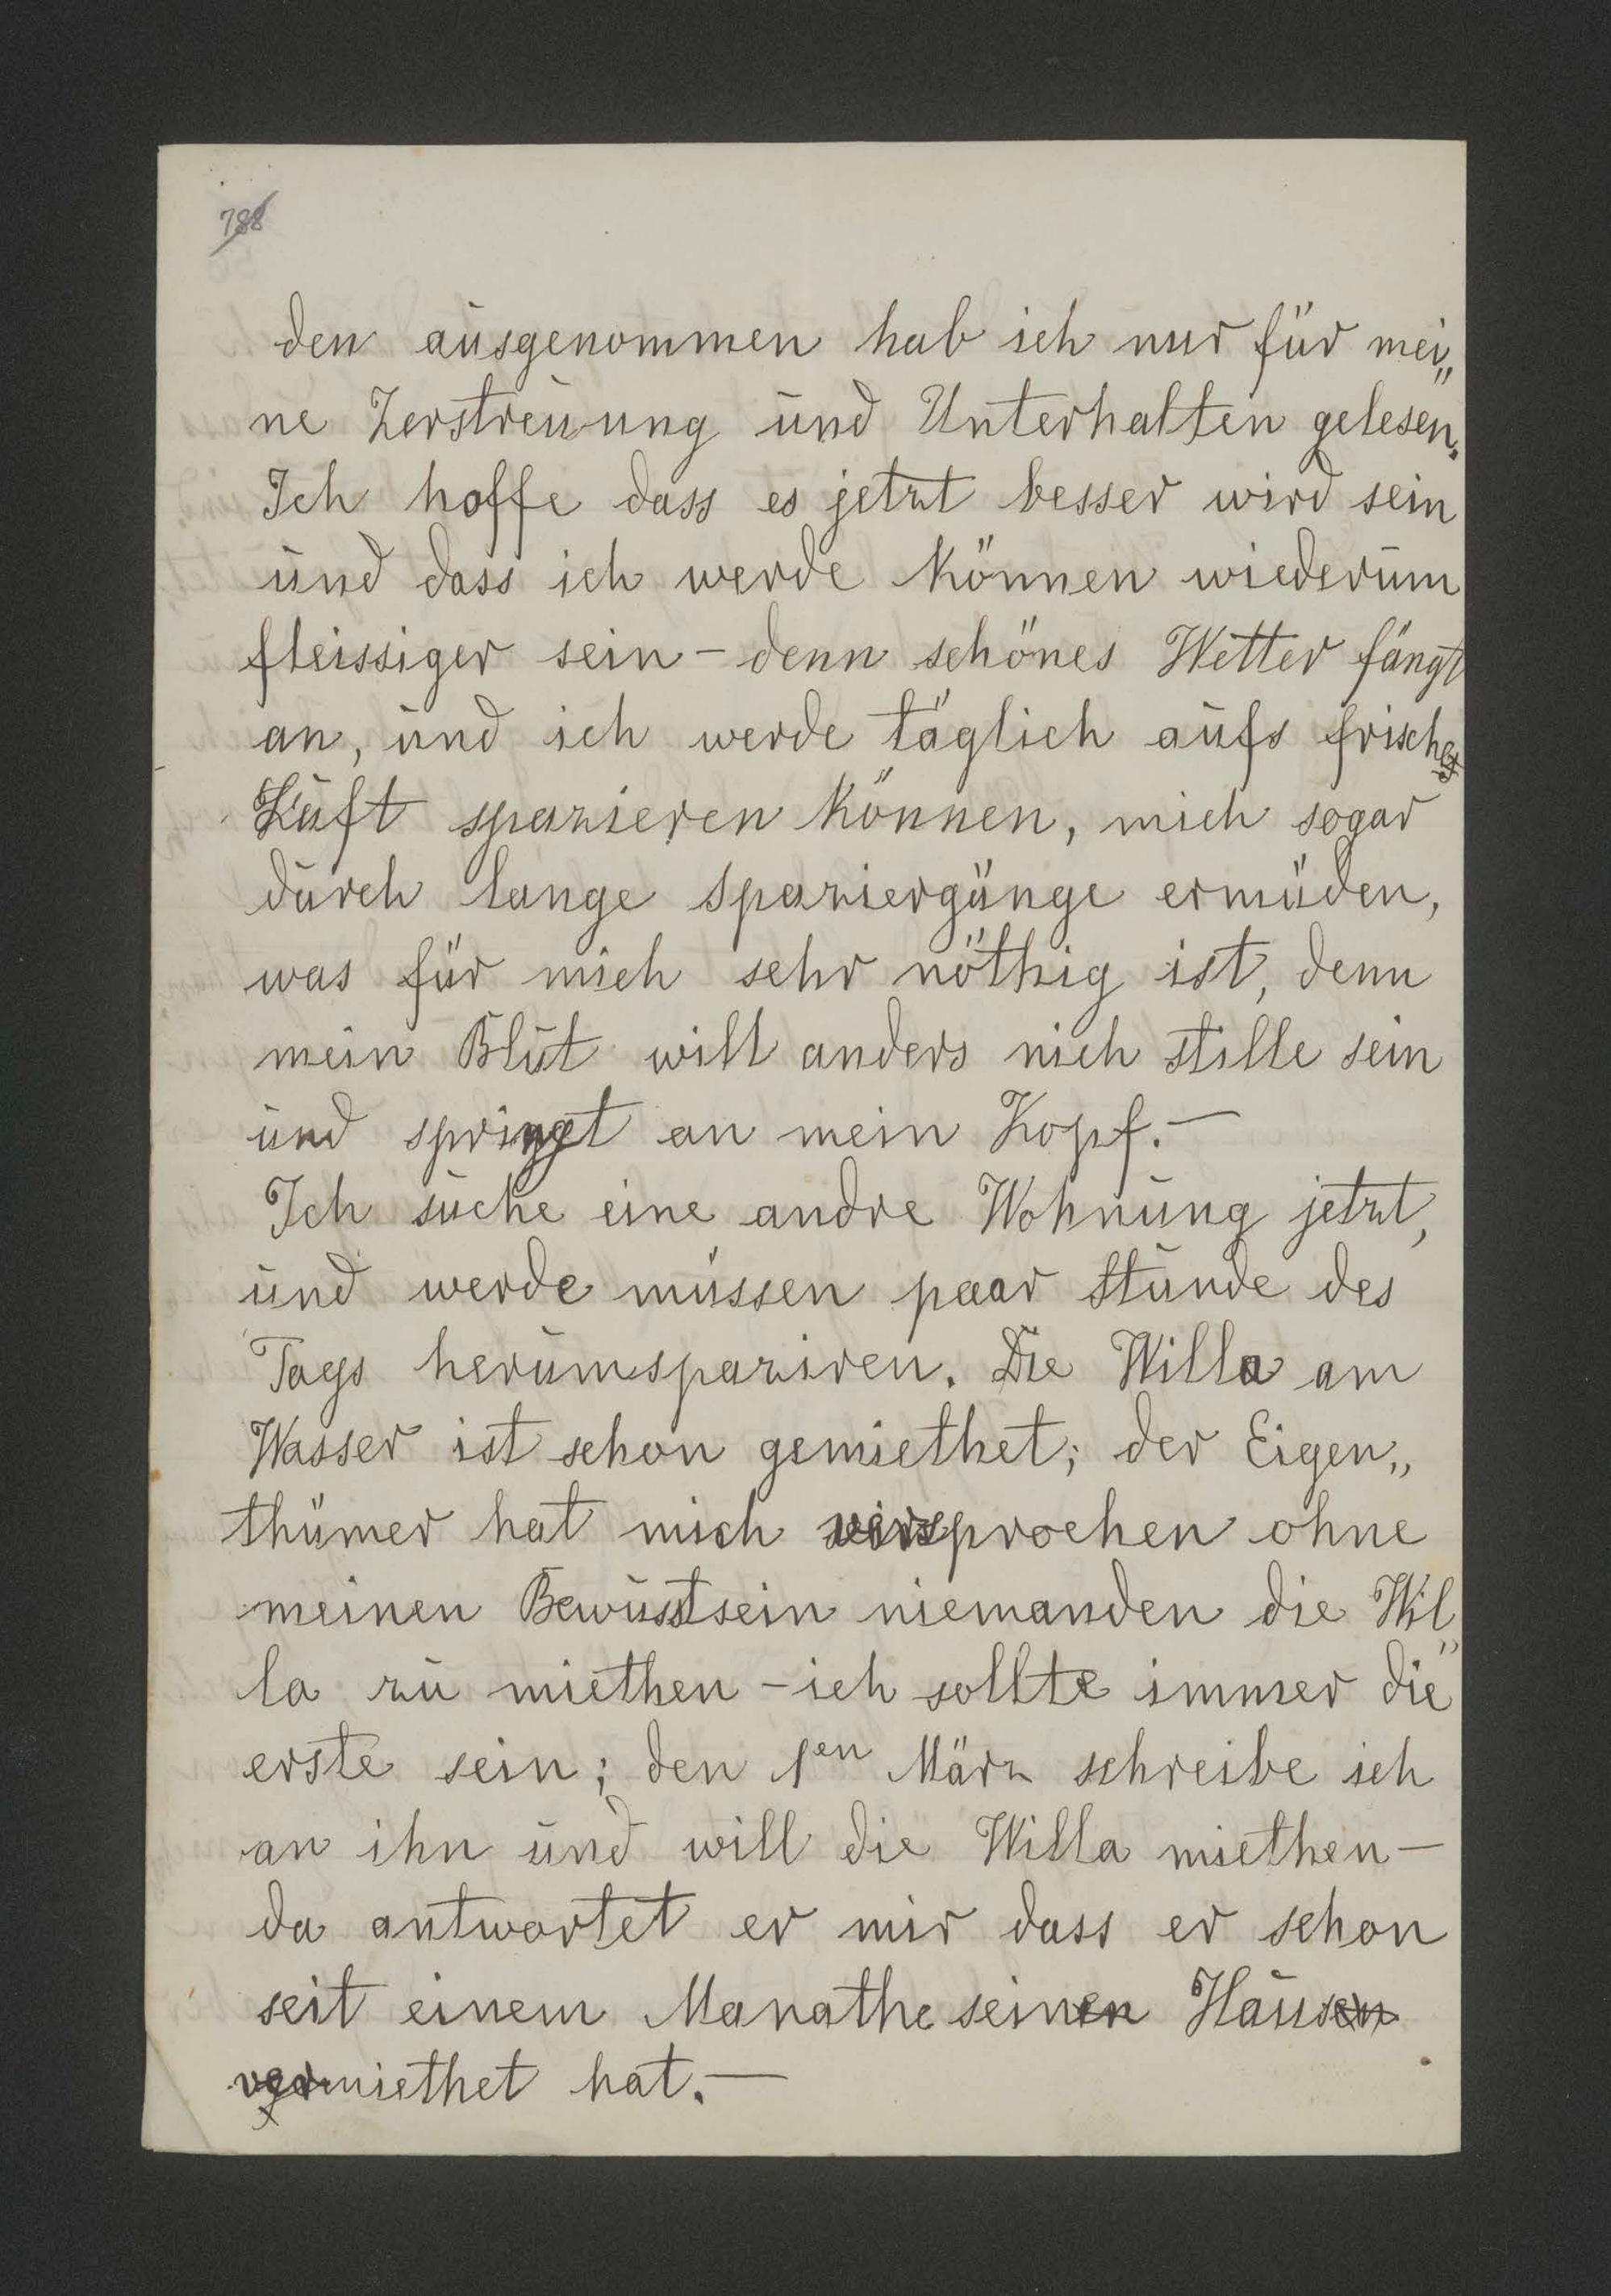 788
den ausgenommen hab ich nur für mei„
ne Zerstreuung und Unterhalten gelesen.
Ich hoffe dass es jetzt besser wird sein
und dass ich werde können wiederum
fleissiger sein – denn schönes Wetter fängt
an, und ich werde täglich aufs frisches
Luft spazieren können, mich sogar
durch lange spaziergänge ermüden,
was für mich sehr nöthig ist, denn
mein Blut will anders nich stille sein
und springt an mein Kopf. –
Ich suche eine andre Wohnung jetzt,
und werde müssen paar stunde des
Tags herumspaziren. Die Willa am
Wasser ist schon gemiethet; der Eigen„
thümer hat mich versprochen ohne
meinen Bewusstsein niemanden die Wil„
la zu miethen – ich sollte immer die
erste sein; den 1en März schreibe ich
an ihn und will die Willa miethen –
da antwortet er mir dass er schon
seit einem Manathe seinen Hausen
vermiethet hat. –